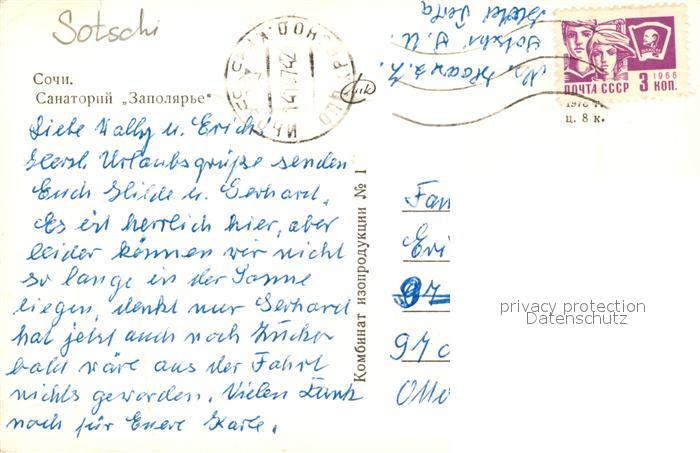 Sotschi
Сочи.
Санаторий „Заполярье“
Liebe Wally u. Erich!
Herzl. Urlaubsgrüße senden
Euch Hilde u. Gerhard.
Es ist herrlich hier, aber
leider können wir nicht
so lange in der Sonne
liegen, denkt nur Gerhard
hat jetzt auch noch Zucker
bald wäre aus der Fahrt
nichts geworden. Vielen Dank
noch für Euere Karte.
Комбинат изопродукции № 1
ПОЧТА СССР
1966
3 КОП.
ц. 8 к.
Fam
Eri
97
privacy protection
Datenschutz
Otto